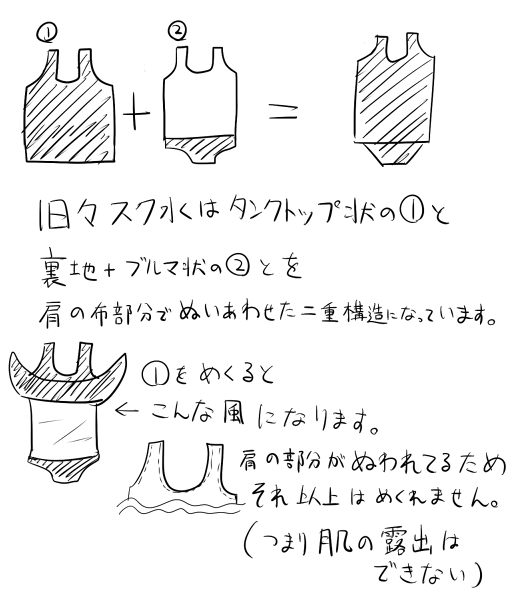 ①
②
+
=
旧々スク水はタンクトップ状の①と
裏地+ブルマ状の②とを
肩の布部分でぬいあわせた二重構造になっています。
①をめくると
←こんな風になります。
肩の部分がぬわれてるため
それ以上はめくれません。
(つまり肌の露出は
できない)